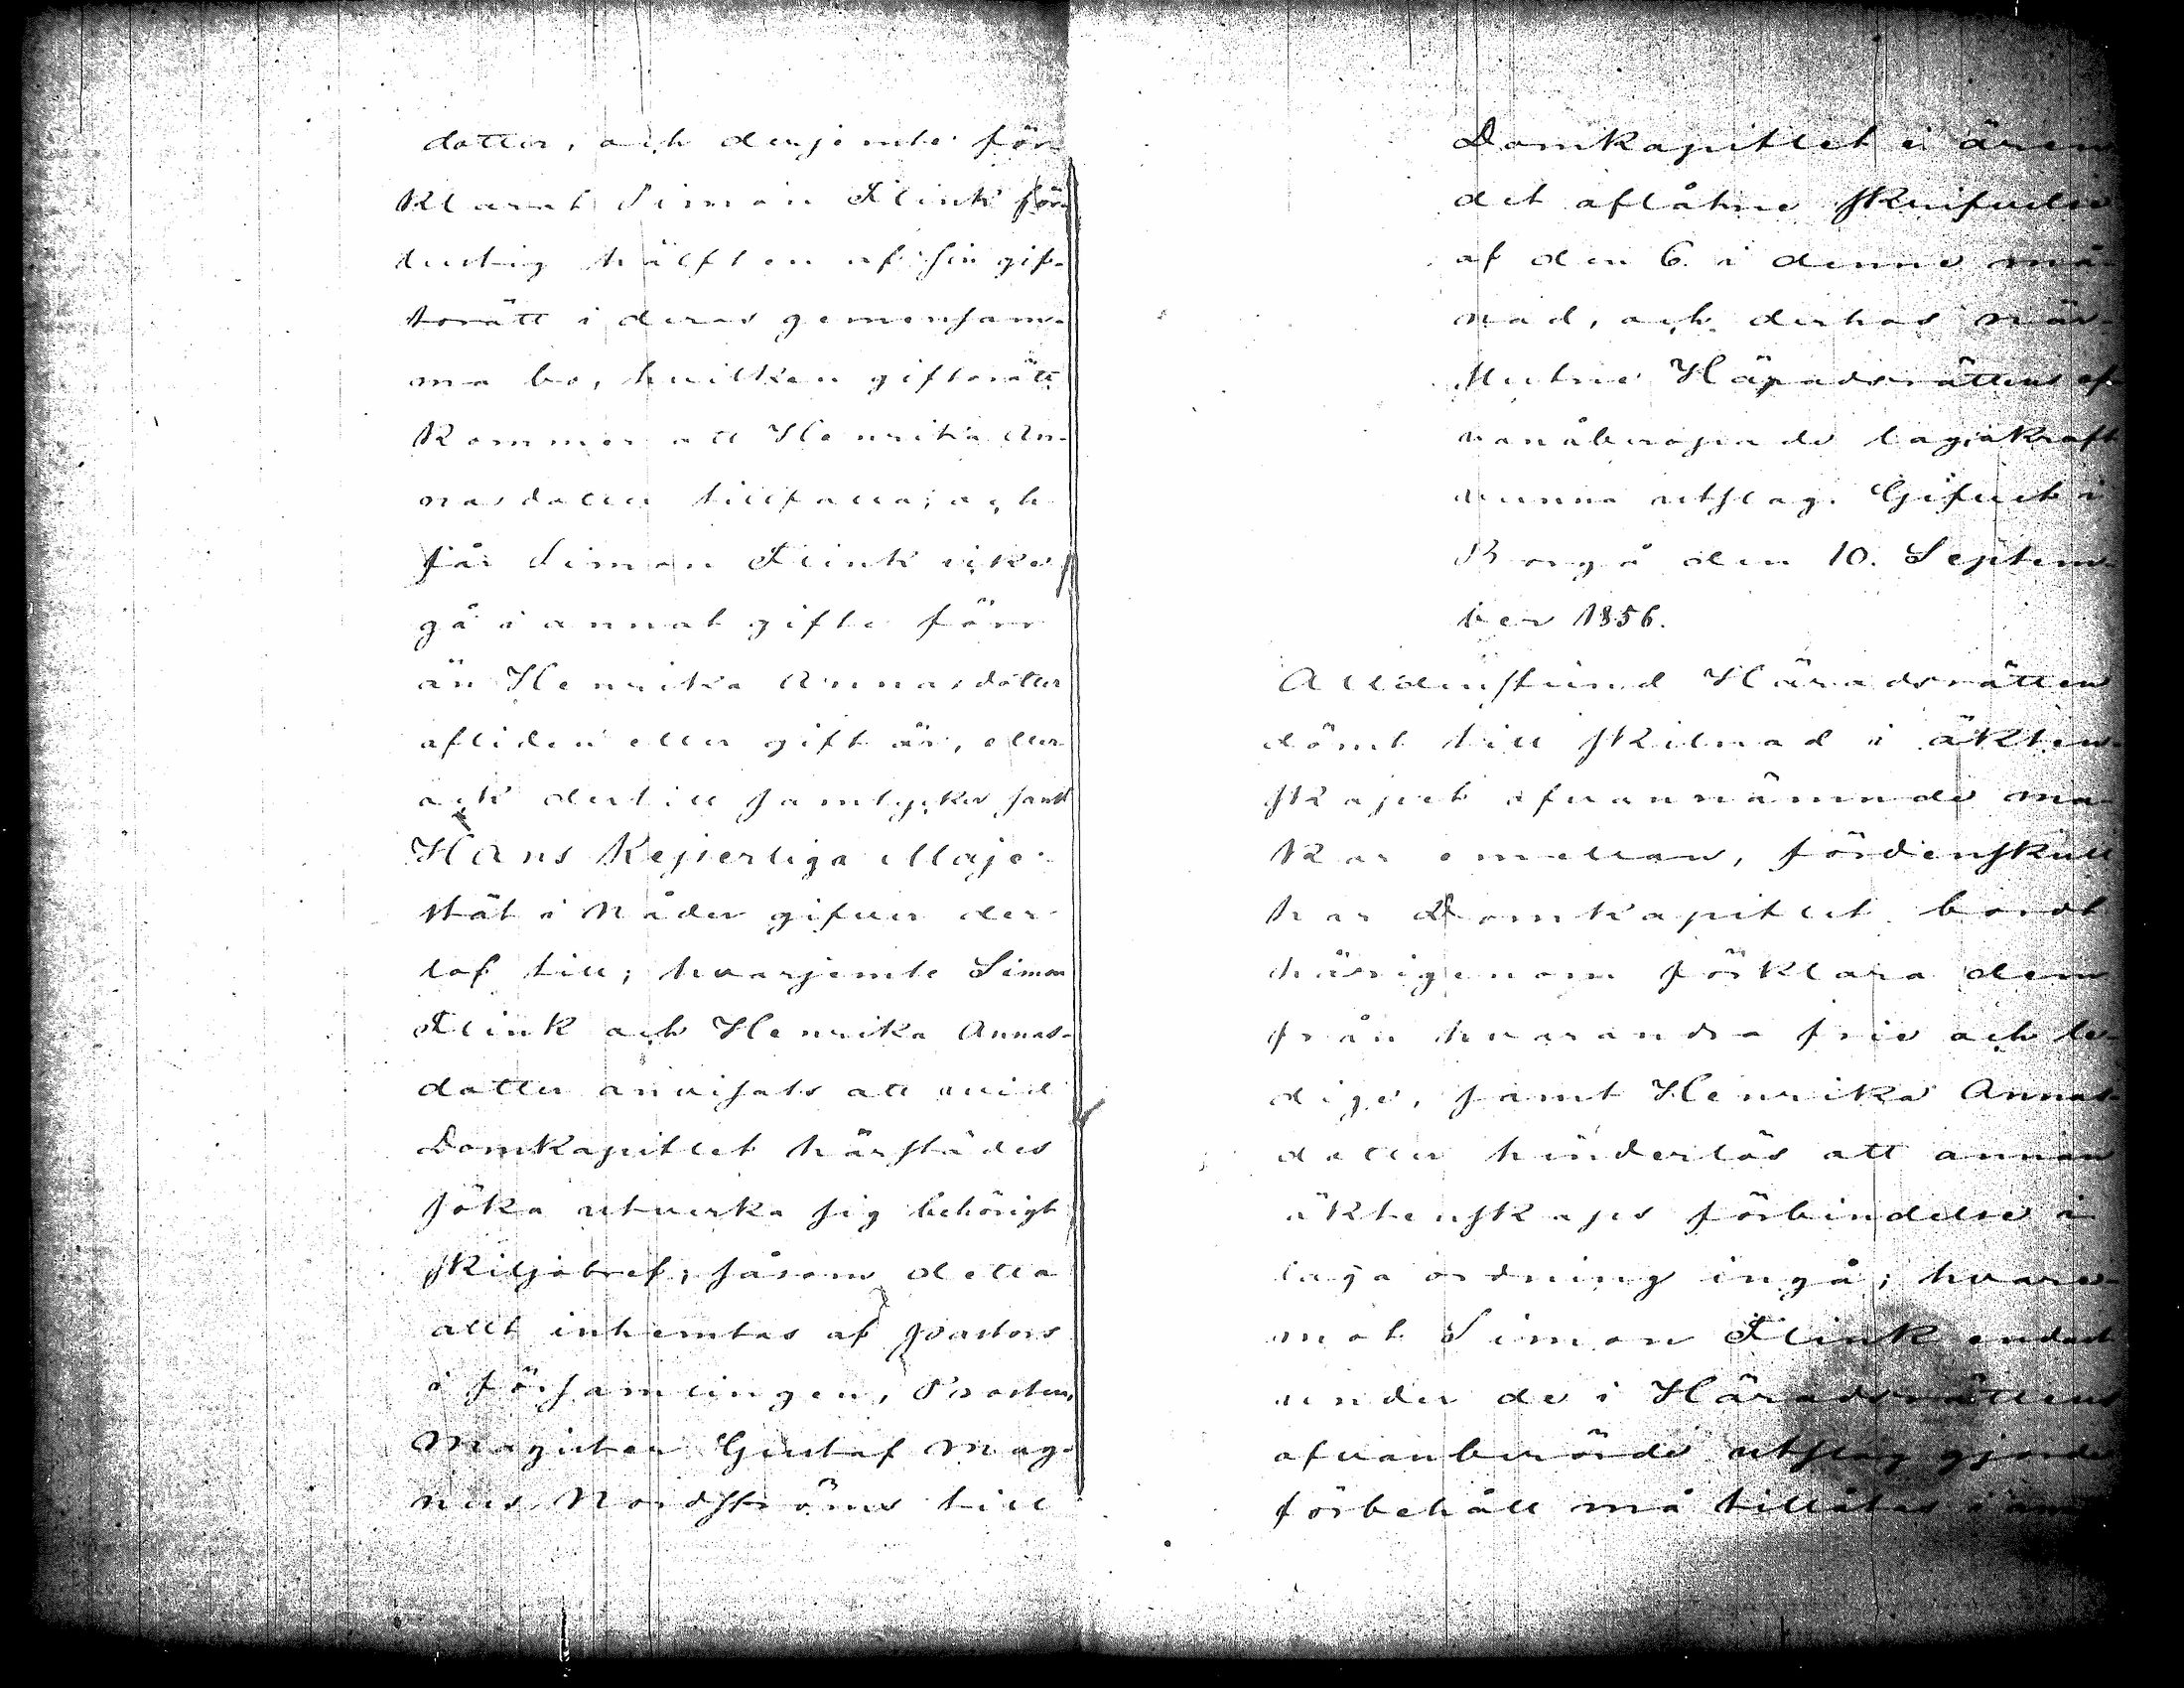 dotter, och derjemte för-
klarat Simon Flink för-
lustig hälften af sin gif-
torätt i deras gemensam-
ma bo, hvilken giftorätt
kommer att Henrika An-
nasdotter tillfalla; och
får Simon Flink icke
gå i annat gifte förr
än Henrika Annasdotter
afliden eller gift är, eller
ock dertill samtycker samt
Hans Kejserliga Maje-
stät i Nåder gifver der-
lof till; hvarjemte Simon
Flink och Henrika Annas-
dotter anvisats att vid
Domkapitlet härstädes
söka utverka sig behörigt
skiljobref; såsom detta
allt inhemtas af Pastors
i församlingen, Prosten,
Magister Gustaf Mag-
nus Nordströms till
Domkapitlet i ären-
det aflåtne skrifvelse
af den 6. i denne må-
nad, och derhos när-
slutne Häradsrättens of-
vanåberopade lagakraft
vunna utslag. Gifvet i
Borgå den 10. Septem-
ber 1856.
Alldenstund Häradsrätten
dömt till skilnad i äkten-
skapet ofvannämnde ma-
kar emellan, fördenskull
har Domkapitlet bordt
härigenom förklara dem
från hvarandra frie och le-
dige, samt Henrika Annas-
dotter hinderlös att annan
äktenskaps förbindelse i
laga ordning ingå; hvare-
mot Simon Flink endast
under de i Häradsrättens
ofvanberörde utslag gjorde
förbehåll må tillåtas i an-